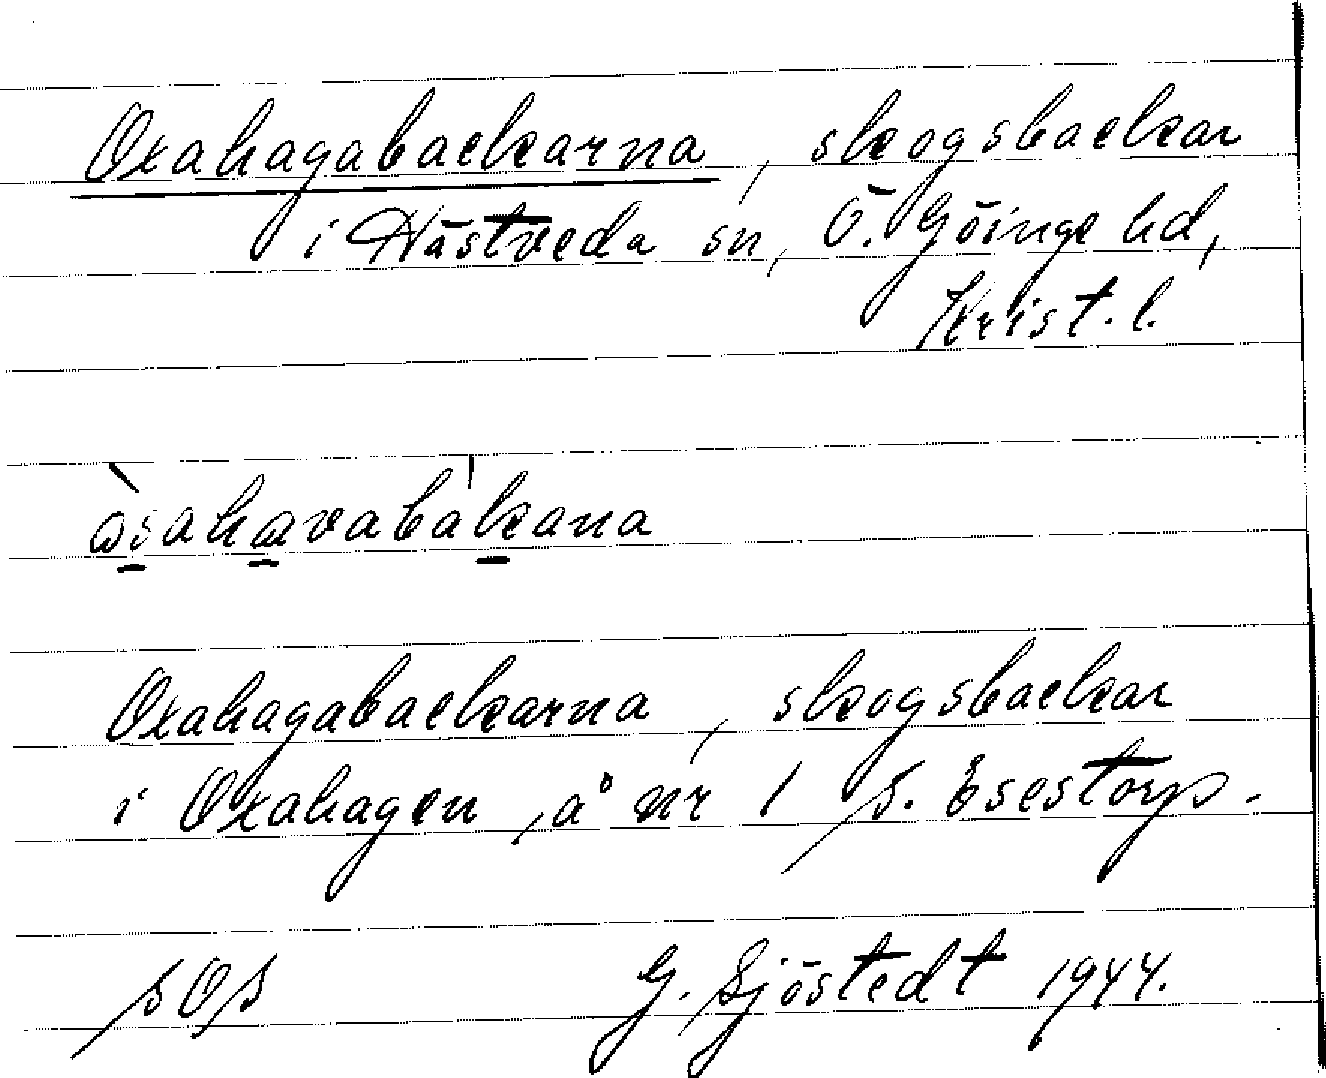 Oxahagabackarna, skogsbackar
i Hästveda sn, Ö. Göinge hd,
Krist. l.
òsahavabákana
Oxahagabackarna, skogsbackar
i Oxahagen, å nr 1 S. Esestorp.
SOS G. Sjöstedt 1944.